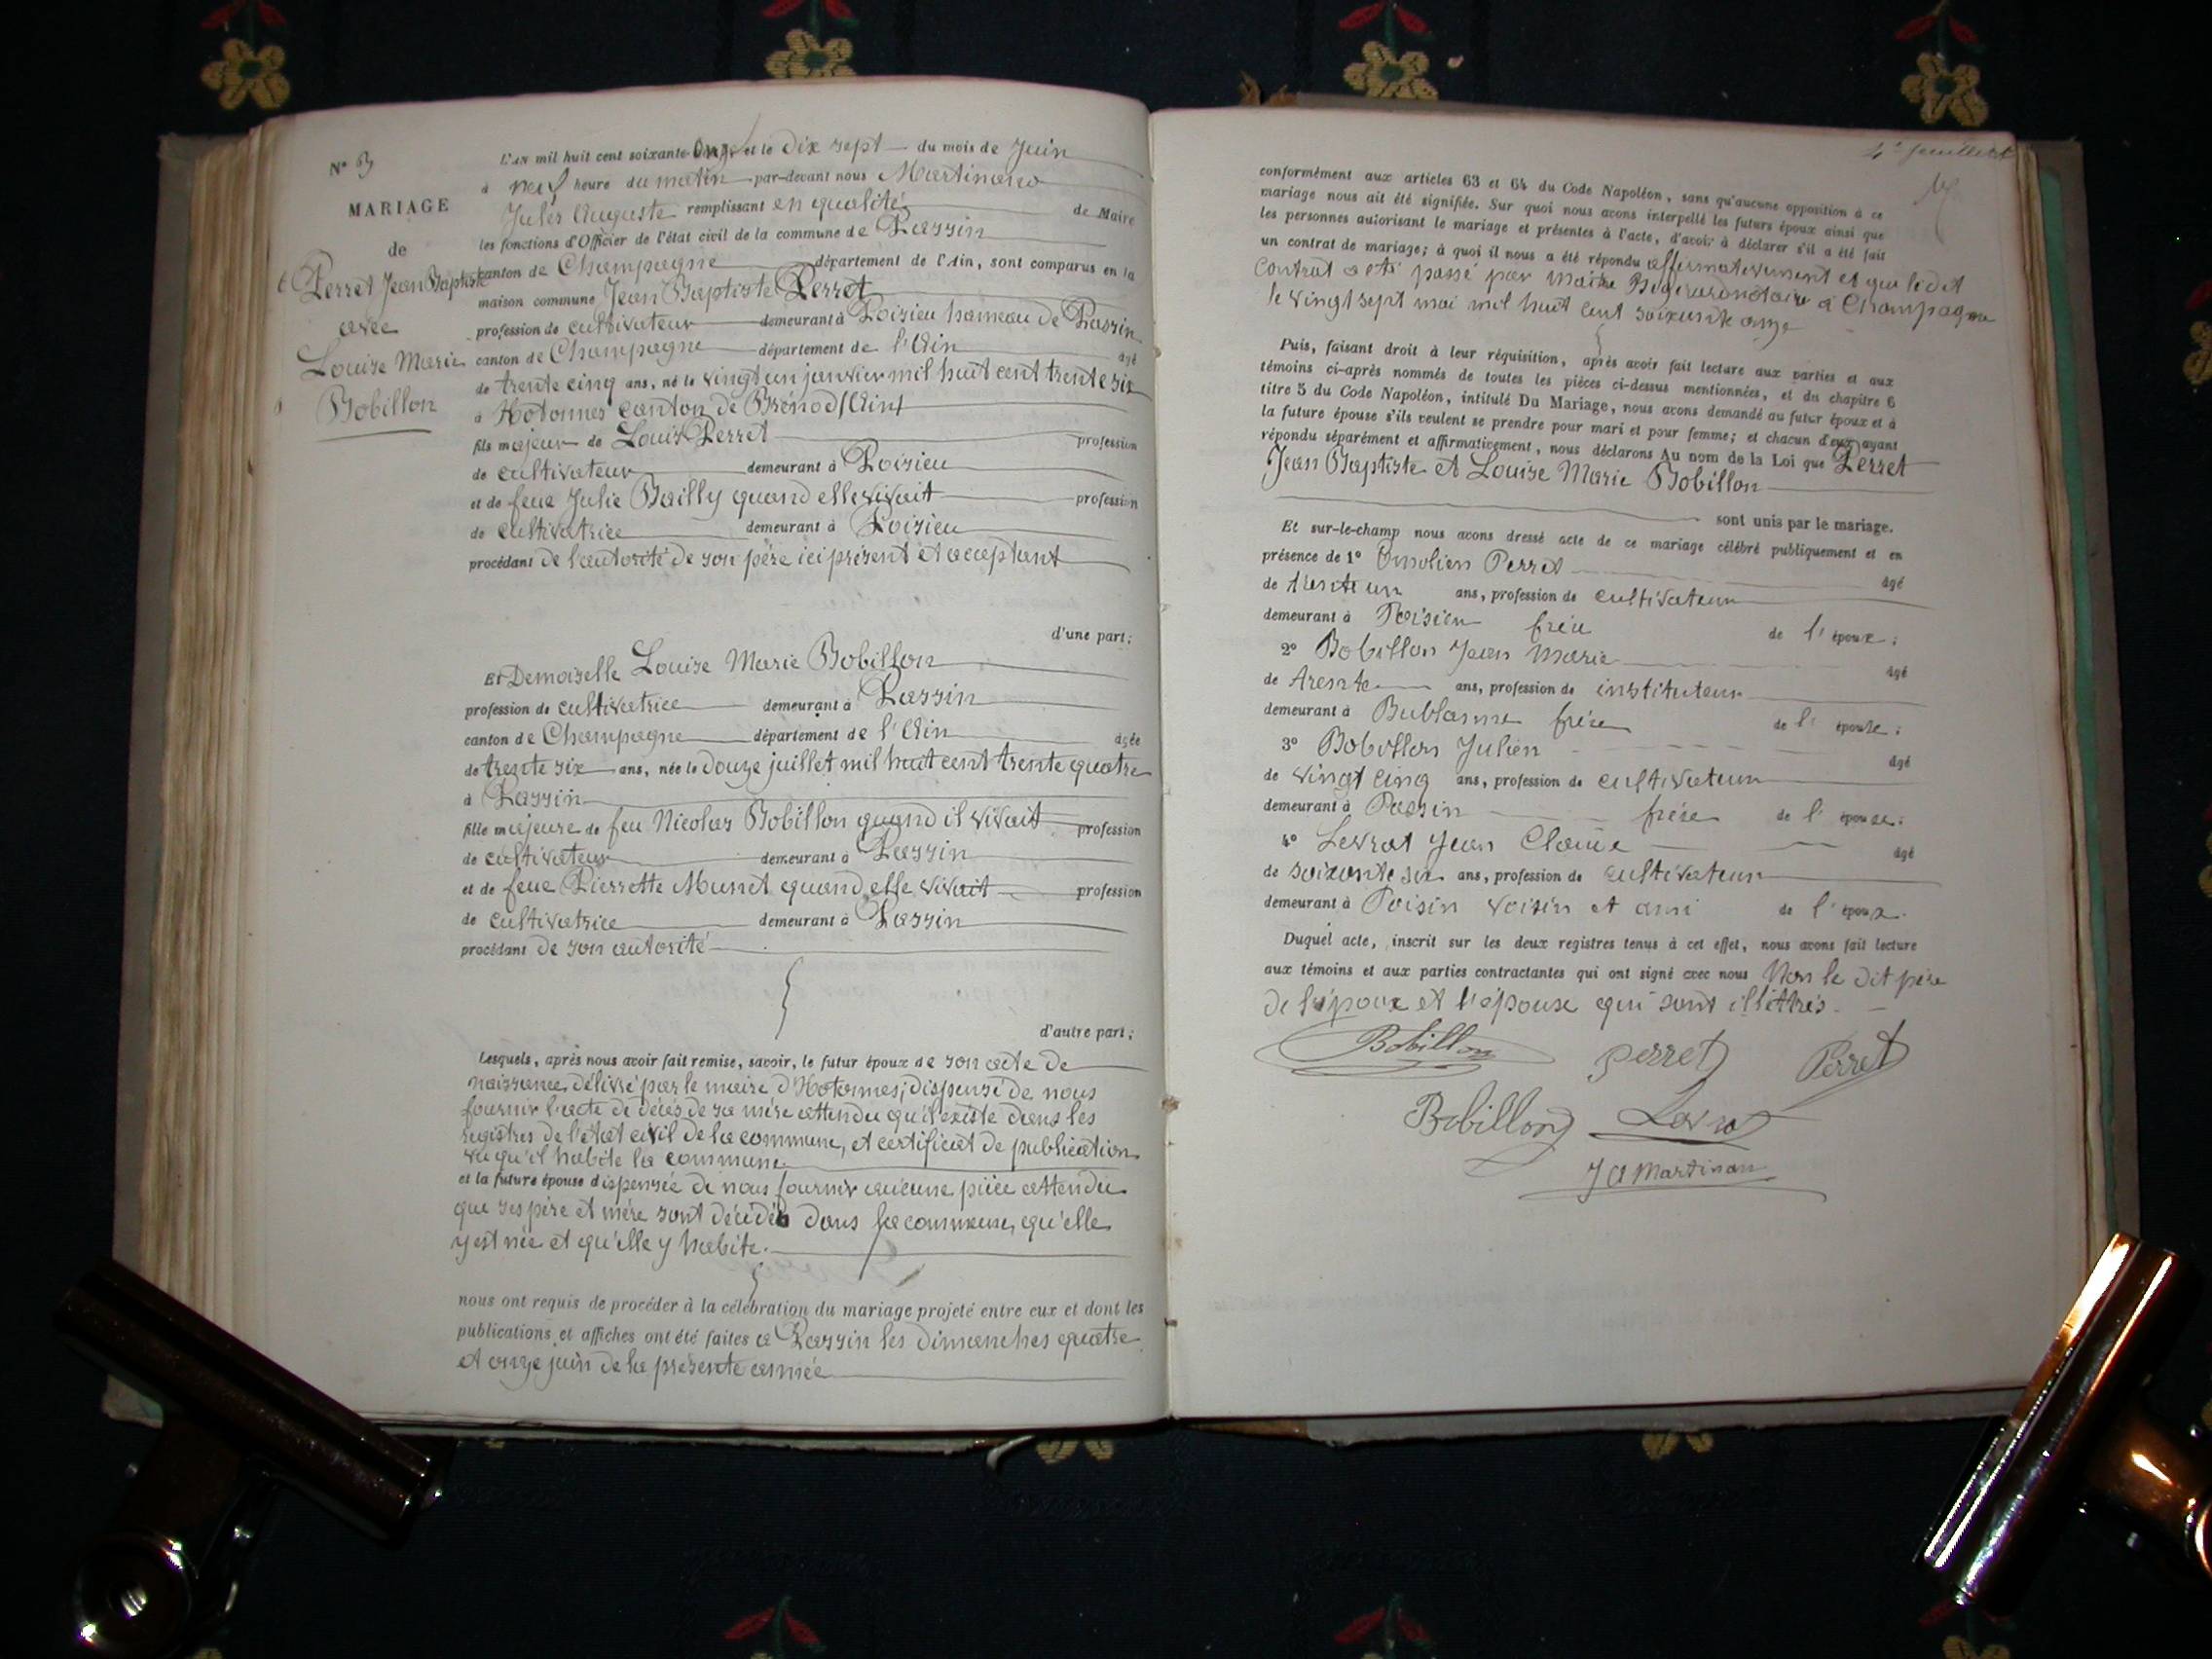 N° 3
MARIAGE
de
Perret Jean Baptiste
avec
Louise Marie
Bobillon
L'an mil huit cent soixante onze et le dix sept du mois de Juin
à neuf heure du matin par-devant nous Martinand
Jules Auguste remplissant en qualité de Maire
les fonctions d'Officier de l'état civil de la commune de Passin
canton de Champagne département de l'Ain, sont comparus en la
maison commune Jean Baptiste Perret
profession de cultivateur demeurant à Poisieu hameau de Passin
canton de Champagne département de l'Ain âgé
de trente cinq ans, né le vingt un janvier mil huit cent trente six
à Hotonnes canton de Brénod (Ain)
fils majeur de Louis Perret profession
de cultivateur demeurant à Poisieu
et de feue Julie Bailly quand elle vivait profession
de cultivatrice demeurant à Poisieu
procédant de l'autorité de son père ici présent et acceptant
d'une part;
Et Demoiselle Louise Marie Bobillon
profession de cultivatrice demeurant à Passin
canton de Champagne département de l'Ain âgée
de trente six ans, née le douze juillet mil huit cent trente quatre
à Passin
fille majeure de feu Nicolas Bobillon quand il vivait profession
de cultivateur demeurant à Passin
et de feue Pierrette Munet quand elle vivait profession
de cultivatrice demeurant à Passin
procédant de son autorité
d'autre part;
Lesquels, après nous avoir fait remise, savoir, le futur époux de son acte de
naissance délivré par le maire d'Hotonnes; dispensé de nous
fournir l'acte de décès de sa mère attendu qu'il existe dans les
registres de l'état civil de la commune, et certificat de publication
vu qu'il habite la commune
et la future épouse dispensée de nous fournir aucune pièce attendu
que ses père et mère sont décédés dans la commune, qu'elle
y est née et qu'elle y habite.
nous ont requis de procéder à la célébration du mariage projeté entre eux et dont les
publications et affiches ont été faites à Passin les dimanches quatre
et onze juin de la présente année
4e feuillet
conformément aux articles 63 et 64 du Code Napoléon, sans qu'aucune opposition à ce
mariage nous ait été signifiée. Sur quoi nous avons interpellé les futurs époux ainsi que
les personnes autorisant le mariage et présentes à l'acte, d'avoir à déclarer s'il a été fait
un contrat de mariage; à quoi il nous a été répondu affirmativement et que le dit
contrat a été passé par Maître notaire à Champagne
le vingt sept mai mil huit cent soixante onze
Puis, faisant droit à leur réquisition, après avoir fait lecture aux parties et aux
témoins ci-après nommés de toutes les pièces ci-dessus mentionnées, et du chapitre 6
titre 5 du Code Napoléon, intitulé Du Mariage, nous avons demandé au futur époux et à
la future épouse s'ils veulent se prendre pour mari et pour femme; et chacun d'eux ayant
répondu séparément et affirmativement, nous déclarons Au nom de la Loi que Perret
Jean Baptiste et Louise Marie Bobillon
sont unis par le mariage.
Et sur-le-champ nous avons dressé acte de ce mariage célébré publiquement et en
présence de 1° Perret âgé
de trente un ans, profession de cultivateur
demeurant à Poisieu frère de l'époux;
2° Bobillon Jean Marie âgé
de trente ans, profession de instituteur
demeurant à Bublanne frère de l'épouse;
3° Bobillon Julien âgé
de vingt cinq ans, profession de cultivateur
demeurant à Passin frère de l'épouse;
4° Levrat Jean Claude âgé
de soixante six ans, profession de cultivateur
demeurant à Poisin voisin et ami de l'époux.
Duquel acte, inscrit sur les deux registres tenus à cet effet, nous avons fait lecture
aux témoins et aux parties contractantes qui ont signé avec nous Non le dit père
de l'époux et l'épouse qui sont illettrés.
Bobillon perret Perret
Bobillon Levrat
J A Martinan